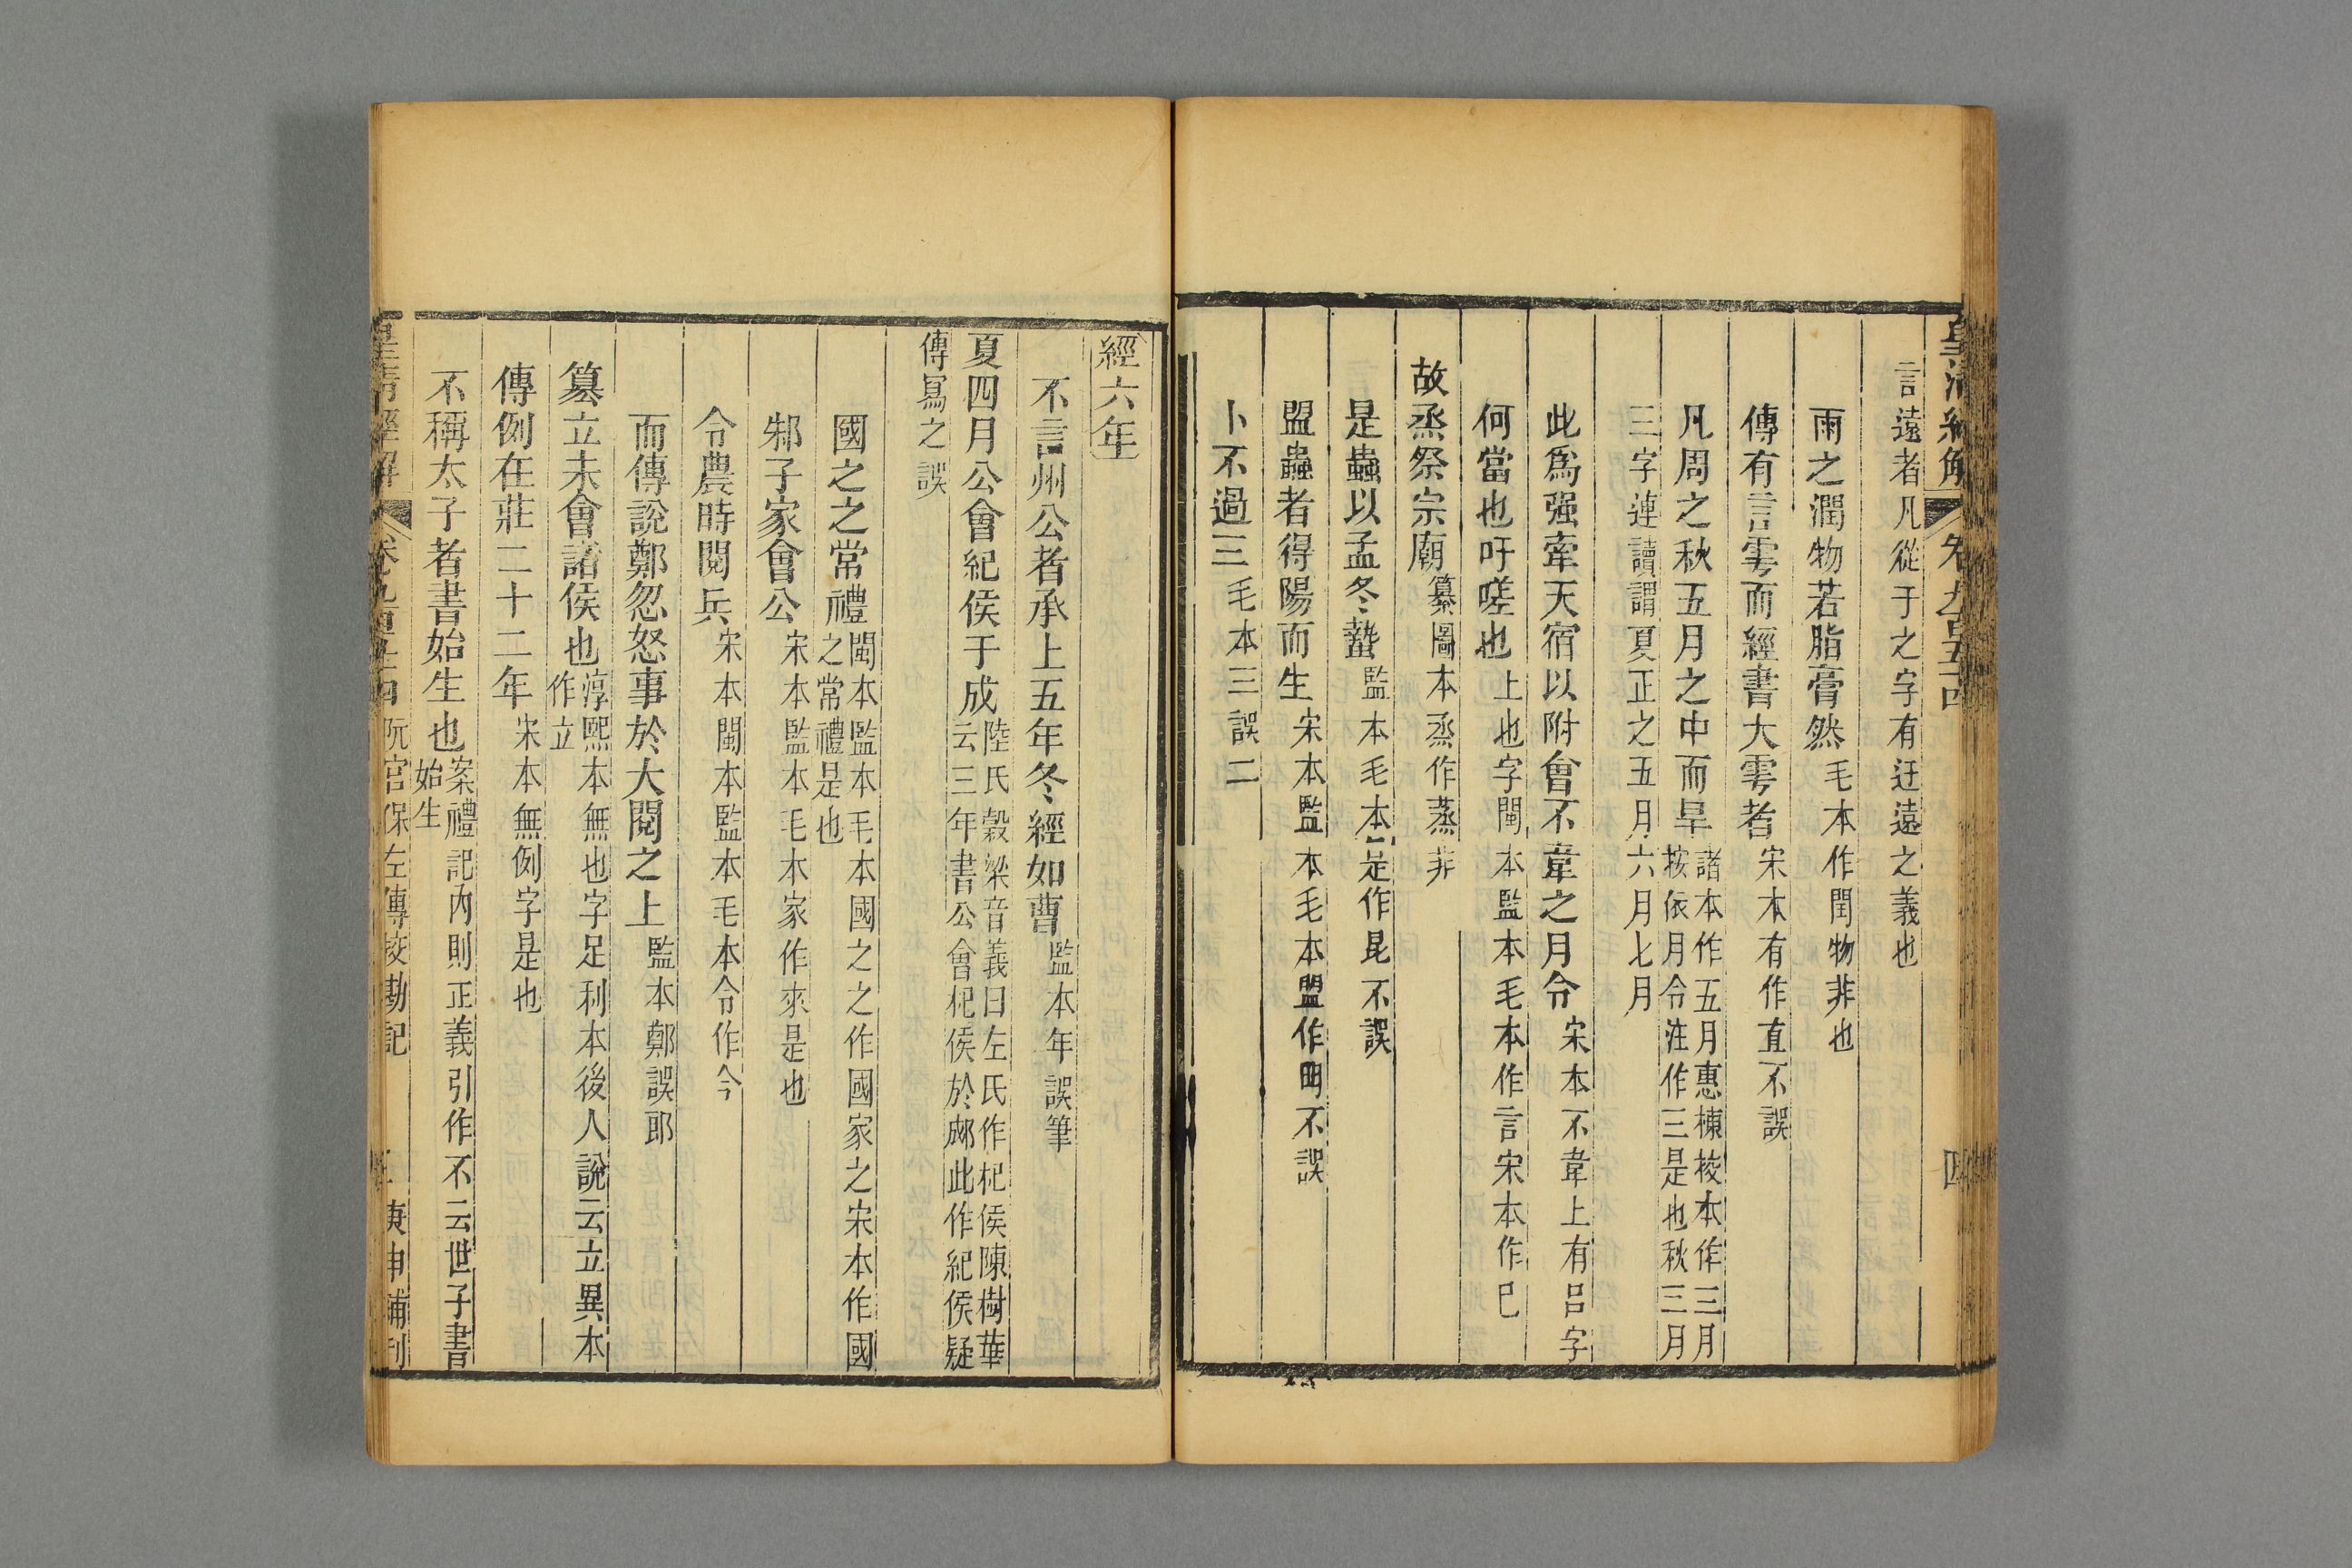 皇清經解 卷九百五十四 四
言遠者凡從于之字有迂遠之義也
雨之潤物若脂膏然毛本作閏物非也
傳有言雩而經書大雩者宋本有作直不誤
凡周之秋五月之中而旱諸本作五月惠棟校本作三月按依月令注作三是也秋三月
三字連讀謂夏正之五月六月七月
此爲强牽天宿以附會不韋之月令宋本不韋上有呂字
何當也吁嗟也上也字閩本監本毛本作言宋本作巳
故烝祭宗廟纂圖本烝作蒸非
是蟲以孟冬蟄監本毛本是作昆不誤
盟蟲者得陽而生宋本監本毛本盟作䖟不誤
卜不過三毛本三誤二
經六年
不言州公者承上五年冬經如曹監本年誤筆
夏四月公會紀侯于成陸氏穀梁音義曰左氏作杞侯陳樹華云三年書公會杞侯於郕此作紀侯疑
傳寫之誤
國之之常禮閩本監本毛本國之之作國家之宋本作國之常禮是也
邾子家會公宋本監本毛本家作來是也
令農時閱兵宋本閩本監本毛本令作今
而傳說鄭忽怒事於大閱之上監本鄭誤郎
篡立未會諸侯也淳熙本無也字足利本後人說云立異本作立
傳例在莊二十二年宋本無例字是也
不稱太子者書始生也案禮記內則正義引作不云世子書始生
皇清經解 卷九百五十四 阮宮保左傳挍勘記 五 庚申補刊